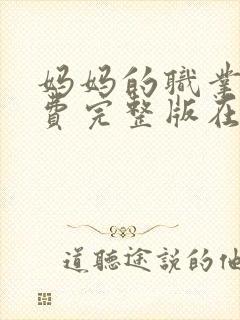 妈妈的職業
費完整版在
道聽途説的他